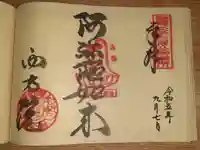 奉拝
令和五年
九月七日
阿弥陀如来
西方院